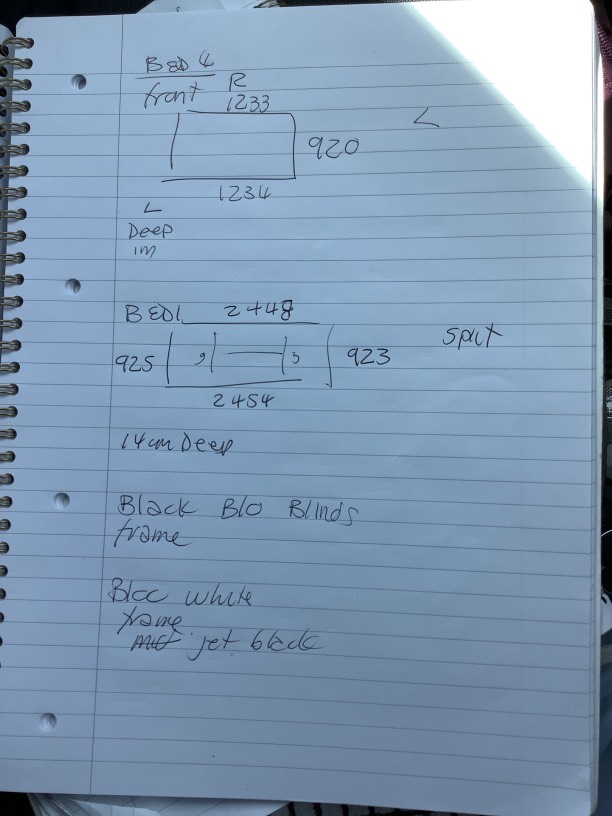 BED 4
front R
1233
L
920
1234
L
Deep
1m
BED1 2448
split
925
923
2454
14cm Deep
Black Blo Blinds
frame
white
frame
jet black